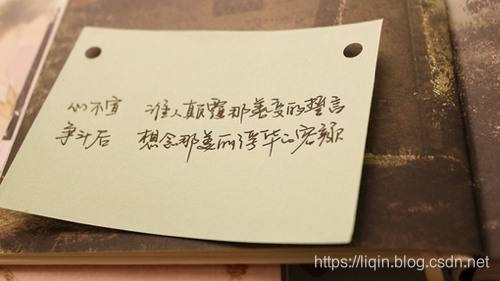 心不宣 谁人颠覆那善变的誓言
争斗后 想念那美丽浮华的容颜
https://liqin.blog.csdn.net